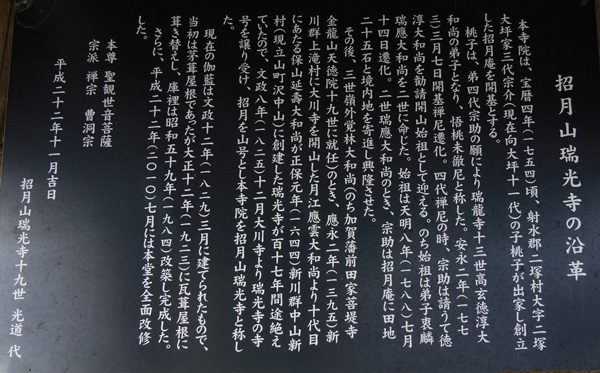 招月山瑞光寺の沿革
本寺院は、宝暦四年(一七五四)頃、射水郡二塚村大字二塚
大坪家三代宗介(現在向大坪十一代)の子桃子が出家し創立
した招月庵を開基とする。
桃子は、第四代宗助の願により瑞龍寺十三世高玄德淳大
和尚の弟子となり、悟桃未徹尼と称した。安永二年(一七七
三)三月七日開基禅尼遷化。四代禅尼の時、宗助は請うて徳
淳大和尚を勧請開山始祖として迎える。のち始祖は弟子衷麟
瑞應大和尚を二世に命した。始祖は天明八年(一七八八)七月
十四日遷化。二世瑞應大和尚のとき、宗助は招月庵に田地
二十五石と境内地を寄進し興隆させた。
その後、三世嶺外覚林大和尚(のち加賀藩前田家菩堤寺
金龍山天徳院十九世に就任)のとき、應永二年(一三九五)新
川群上滝村に大川寺を開山した月江應雲大和尚より十代目
にあたる保山延壽大和尚が正保元年(一六四四)新川群中山新
村(現立山町沢中山)に創建した瑞光寺が百十七年間途絶え
ていたので、文政八年(一八二五)十二月大川寺より瑞光寺の寺
号を譲り受け、招月を山号とし本寺院を招月山瑞光寺と称し
た。
現在の伽藍は文政十二年(一八二九)三月に建てられたもので、
当初は茅葺屋根であったが大正十二年(一九二三)に瓦葺屋根に
葺き替えし、庫裡は昭和五十九年(一九八四)改築し完成した。
さらに、平成二十二年(二〇一〇)七月には本堂を全面改修
した。
本尊 聖観世音菩薩
宗派 禅宗 曹洞宗
平成二十二年十一月吉日
招月山瑞光寺十九世 光道 代